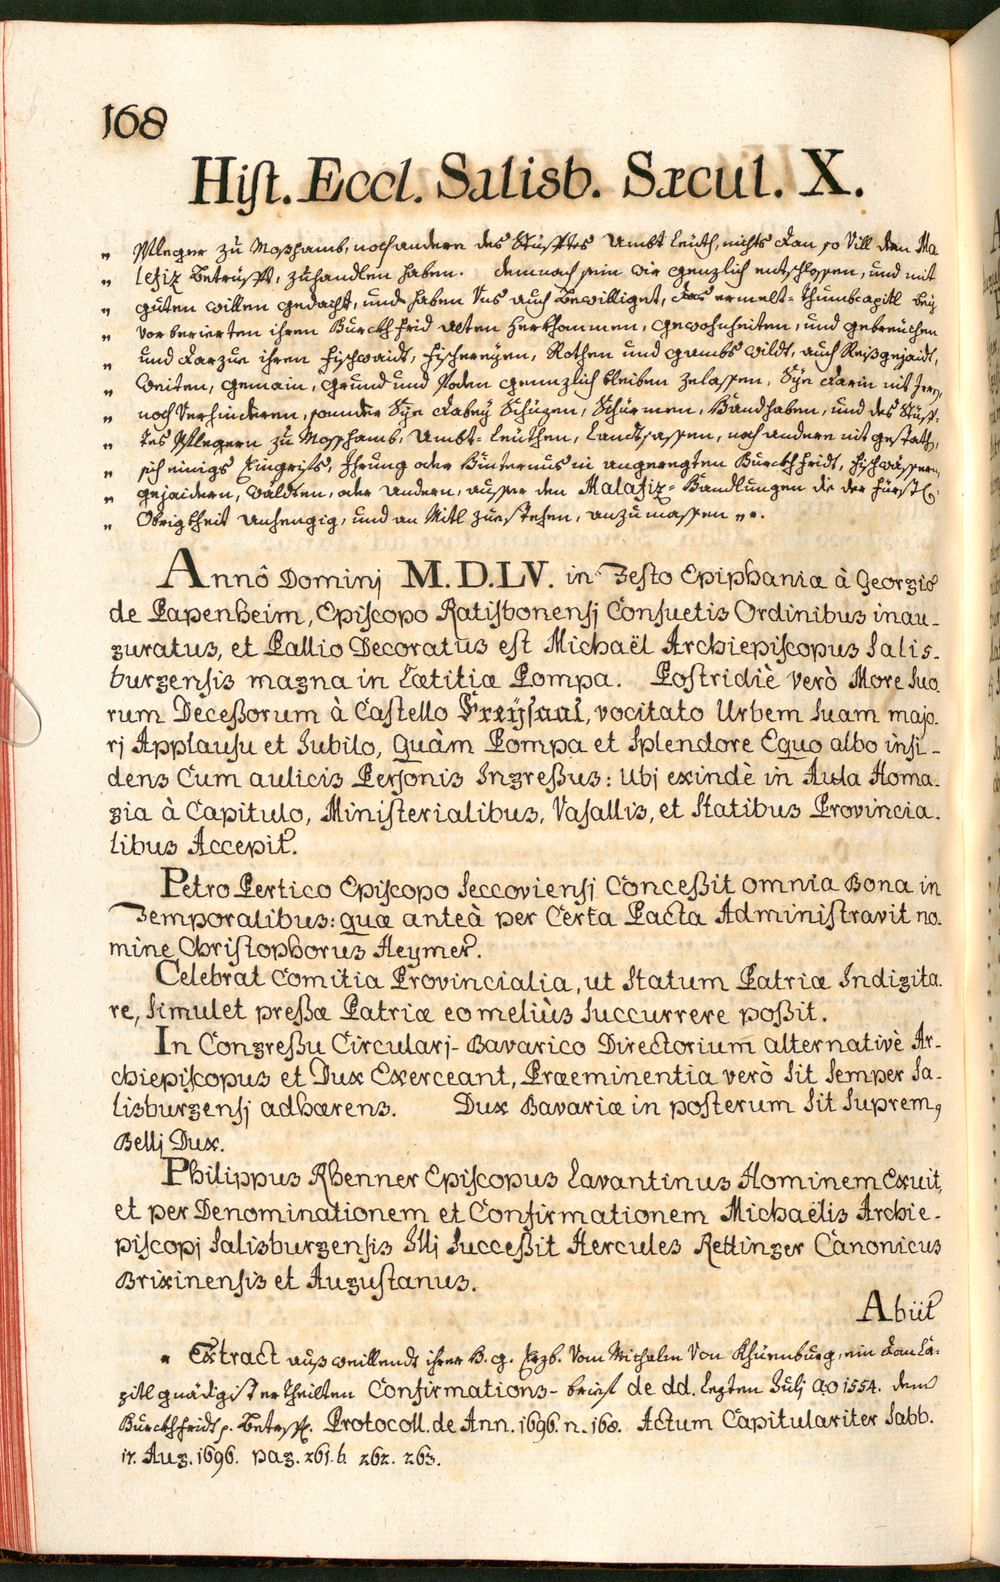 168
Hist. Eccl. Salisb. Sæcul. X.
„ Pfleger zu Moßhamb, noch andere des Stüfftes Ambt Leüth, nichts dan so Vill dem Ma
„ lefiz betrüfft, zuhandlen haben. demnach sein wir genzlich entschlossen, und mit
„ guten willen gedacht, und haben Uns auch bewilliget, das ermelt= thumbcapitl bey
„ vorberierten ihren Burckhfrid alten herkhommen, gewohnheiten, und gebreüchen
„ und darzue ihren fischwaidt, fischereyen, Rothen und gambs wildt, auch Reißgejaidt,
„ Weiten, gemain, grund und Poden gennzlich bleiben zelassen, Sye darin nit
„ noch Verhinderen, sonder Sye dabey Schüzen, Schürmen, Handhaben, und des Stüff-
„ tes Pflegern zu Mosshamb, Ambt= leüthen, Landtsassen, noch andere nit gestath,
„ sich einigs Eingriffs, Ihrung oder Hinternus in angeregten Burckhfridt, fischwässern,
„ gejaidern, Wäldten, oder andern, ausser den Malafiz= Handlungen die der fürstl:
„ Obrigkheit anhengig, und an Mitl zuestehen, anzumassen „.
Annô Dominj M.D.LV. in Festo Epiphaniæ à Georgio
de Papenheim, Episcopo Ratisbonensj Consuetis Ordinibus inau-
guratus, et Pallio Decoratus est Michaël Archiepiscopus Salis-
burgensis magna in Lætitiæ Pompa. Postridiè verò More Suo
rum Deceßorum à Castello Freÿsaal, vocitato Urbem Suam majo-
rj Applausu et Jubilo, Quàm Pompa et Splendore Equo albo insi-
dens Cum aulicis Personis Ingreßus: Ubj exindè in Aula Homa-
gia à Capitulo, Ministerialibus, Vasallis, et Statibus Provincia-
libus Accepit.
Petro Pertico Episcopo Seccoviensj Conceßit omnia Bona in
Temporalibus: quæ anteà per Certa Pacta Administravit no-
mine Christophorus Heymer.
Celebrat Comitia Provincialia, ut Statum Patriæ Indigita-
re, Simulet preßæ Patriæ eo meliùs Succurrere poßit.
In Congreßu Circularj- Bavarico Directorium alternativè Ar-
chiepiscopus et Dux Exerceant, Præeminentia verò Sit Semper Sa-
lisburgensj adhærens. Dux Bavariæ in posterum Sit Suprem9
Bellj Dux.
Philippus Rhenner Episcopus Lavantinus Hominem Exuit,
et per Denominationem et Confirmationem Michaëlis Archie-
piscopj Salisburgensis Illj Succeßit Hercules Rettinger Canonicus
Brixinensis et Augustanus.
Abiit
* Extract auß weillendt ihrer H. g. Erzb. Vom Michaelm Von Khüenburg, ein Dom Ca-
pitl gnädigist ertheilten Confirmations- brieff de dd. lezten Julj Aō 1554. dem
Burckhfridt p. betreff. Protocoll. de Ann. 1696. n. 168. Actum Capitulariter Sabb.
17. Aug. 1696. pag. 261. b. 262. 263.